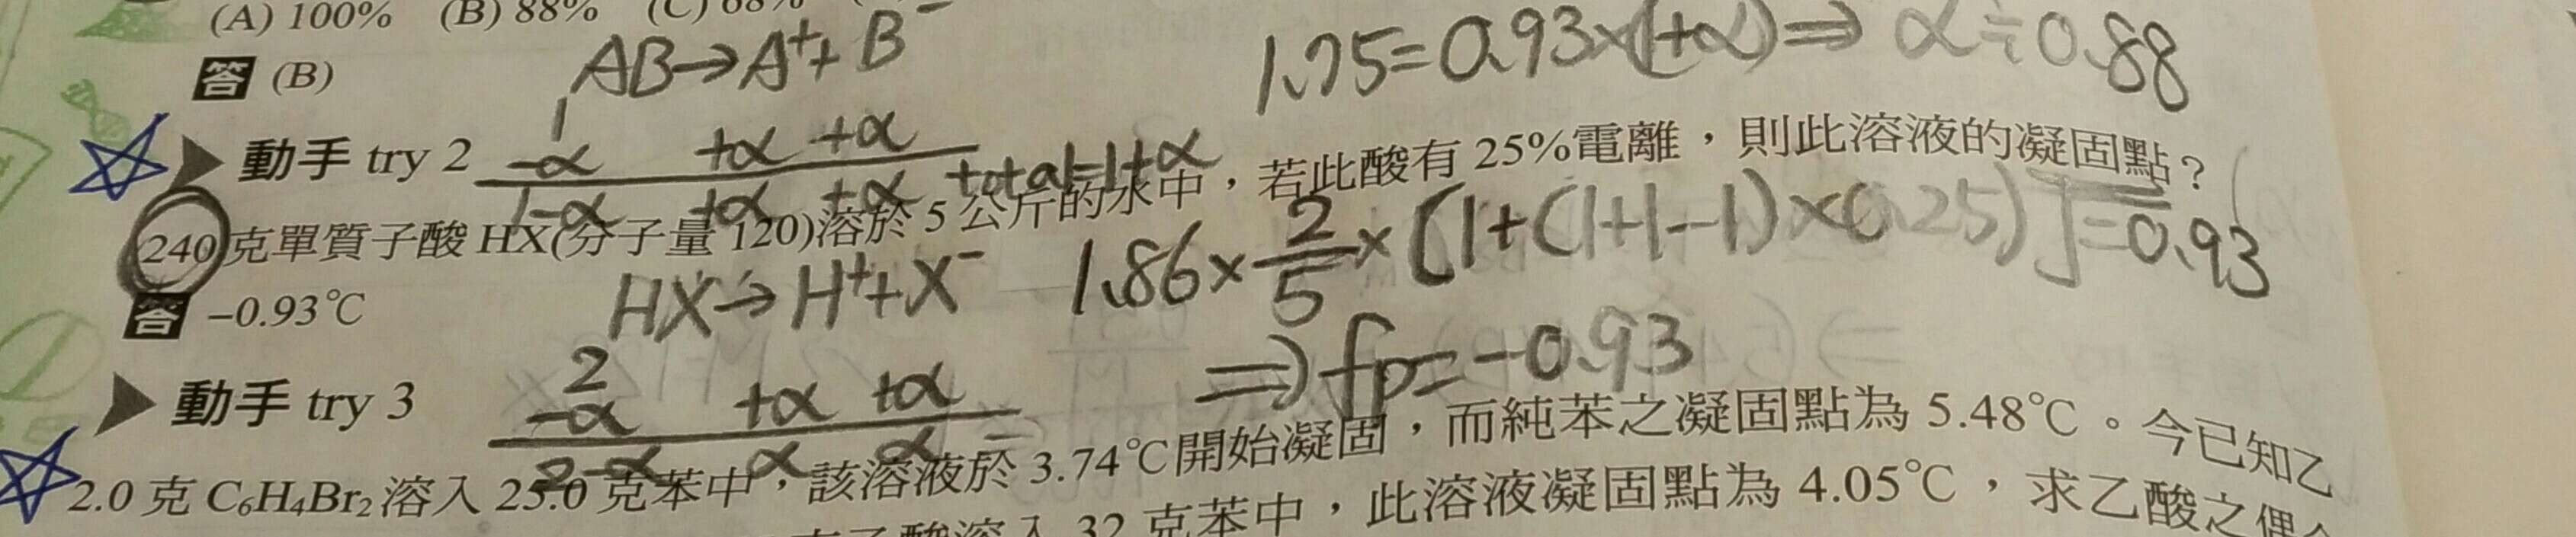 (A) 100% (B) 88% (C) 68%
答 (B)
AB→A⁺+B⁻
1 
-α +α +α
1-α +α +α total=1+α
1.75=0.93×(1+α)⇒ α≒0.88
動手 try 2
240克單質子酸 HX(分子量 120)溶於 5 公斤的水中，若此酸有 25%電離，則此溶液的凝固點？
答 −0.93℃
HX→H⁺+X⁻
2
-α +α +α
2-α α α
1.86×2/5×[1+(1+1-1)×0.25)]=0.93
⇒fp=-0.93
動手 try 3
2.0 克 C₆H₄Br₂ 溶入 25.0 克苯中，該溶液於 3.74℃開始凝固，而純苯之凝固點為 5.48℃。今已知乙
溶入 32 克苯中，此溶液凝固點為 4.05℃，求乙酸之偶